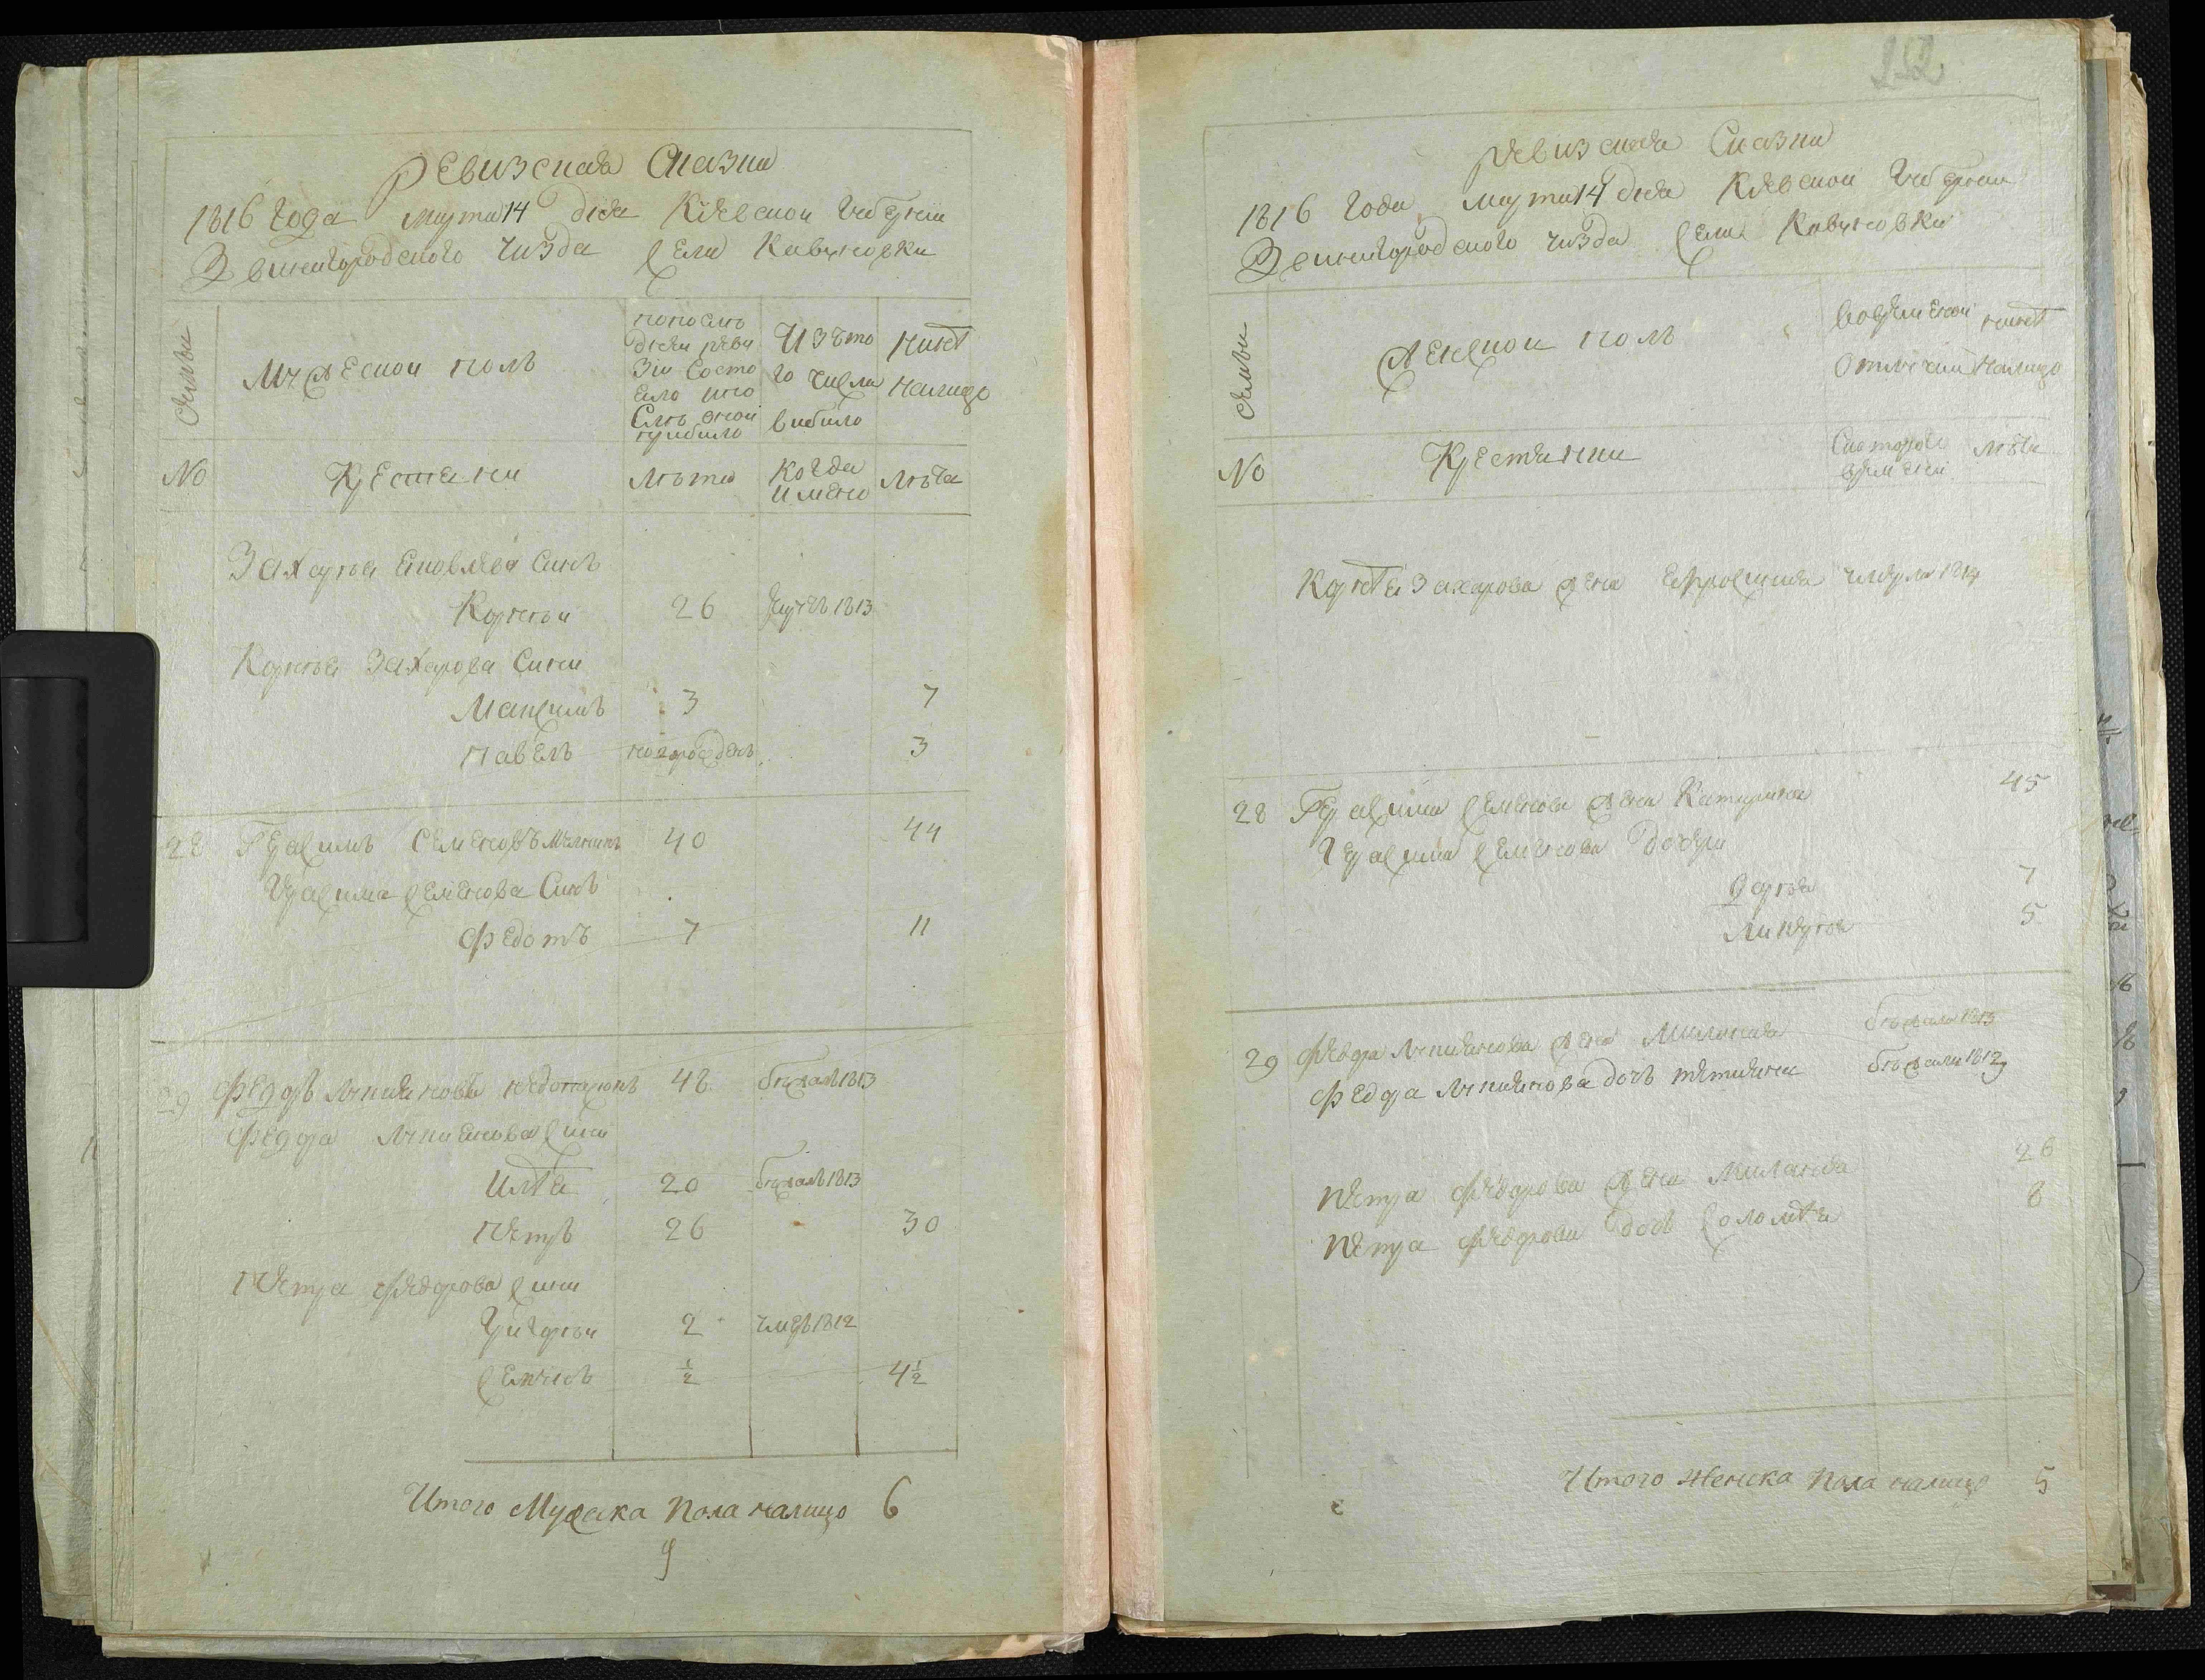 Ревизская Сказка
1816 Года марта 14 дня Киевской Губернии
Звенигородского уизда Села Кавуновки
Семьи
Мужеской полъ
попослѣ
дней реви
зіи Состо
ело
после оной
прибыло
Изъ то
го числа
выбыло
нынѣ
налицо
No
Крестяни
Лѣта
Когда
имено
Лѣта
Захарія Яковлева Синъ
Корнѣй 26 1813
Корнѣя Захарова Сини
Максимъ 3 7
Павелъ новорожденъ 3
28 Герасимъ Семеновъ Мелникъ 40 44
Герасима Семенова Синъ
Федотъ 7 11
29 Федоръ 48 бѣжалъ 1813
Федора Сини
Илія 20 бѣжалъ 1813
Петръ 26 30
Петра Федорова Сини
Григорій 2 умеръ 1812
Семенъ ½ 4½
Итого Мужска Пола налицо 6
252
Ревизская Сказка
1816 Года марта 14 дня Киевской Губернии
Звенигородского уизда Села Кавуновки
Семьи
Женской полъ
Вовремяной
отлучки
нынѣ
налицо
No
Крестянки
Скоторого
времени
лѣта
Корнѣя Захарова жена Ефросиния умерла 1814
28 Герасима Семенова жена Катерина 45
Герасима Семенова дочери
Одаріа 7
5
29 Федора жена Милания бѣжала 1813
Федора дочь Тетияна бѣжали 1812
Петра Федорова жена Милания 26
Петра Федорова дочь Соломѣя 8
Итого Женска Пола налицо 5